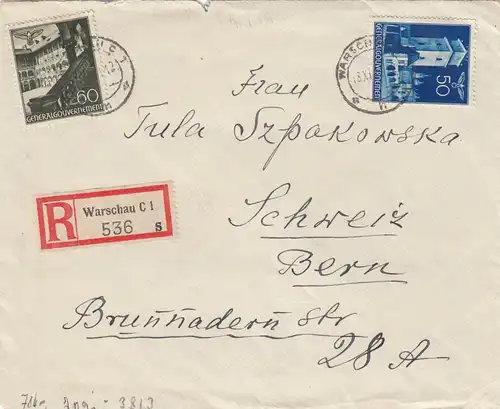 60
GENERALGOUVERNEMENT
WARSCH
50
GENERALGOUVERNEMENT
Frau
Tula Szpakowska
R
Warschau C 1
536 s
Schweiz
Bern
Brunnadern str
28 A
3813